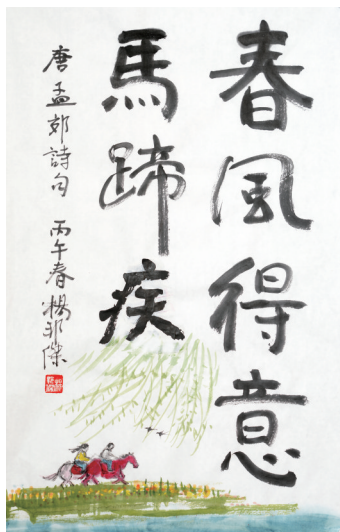 春風得意
馬蹄疾
唐孟郊詩句 丙午春 楊邪傑